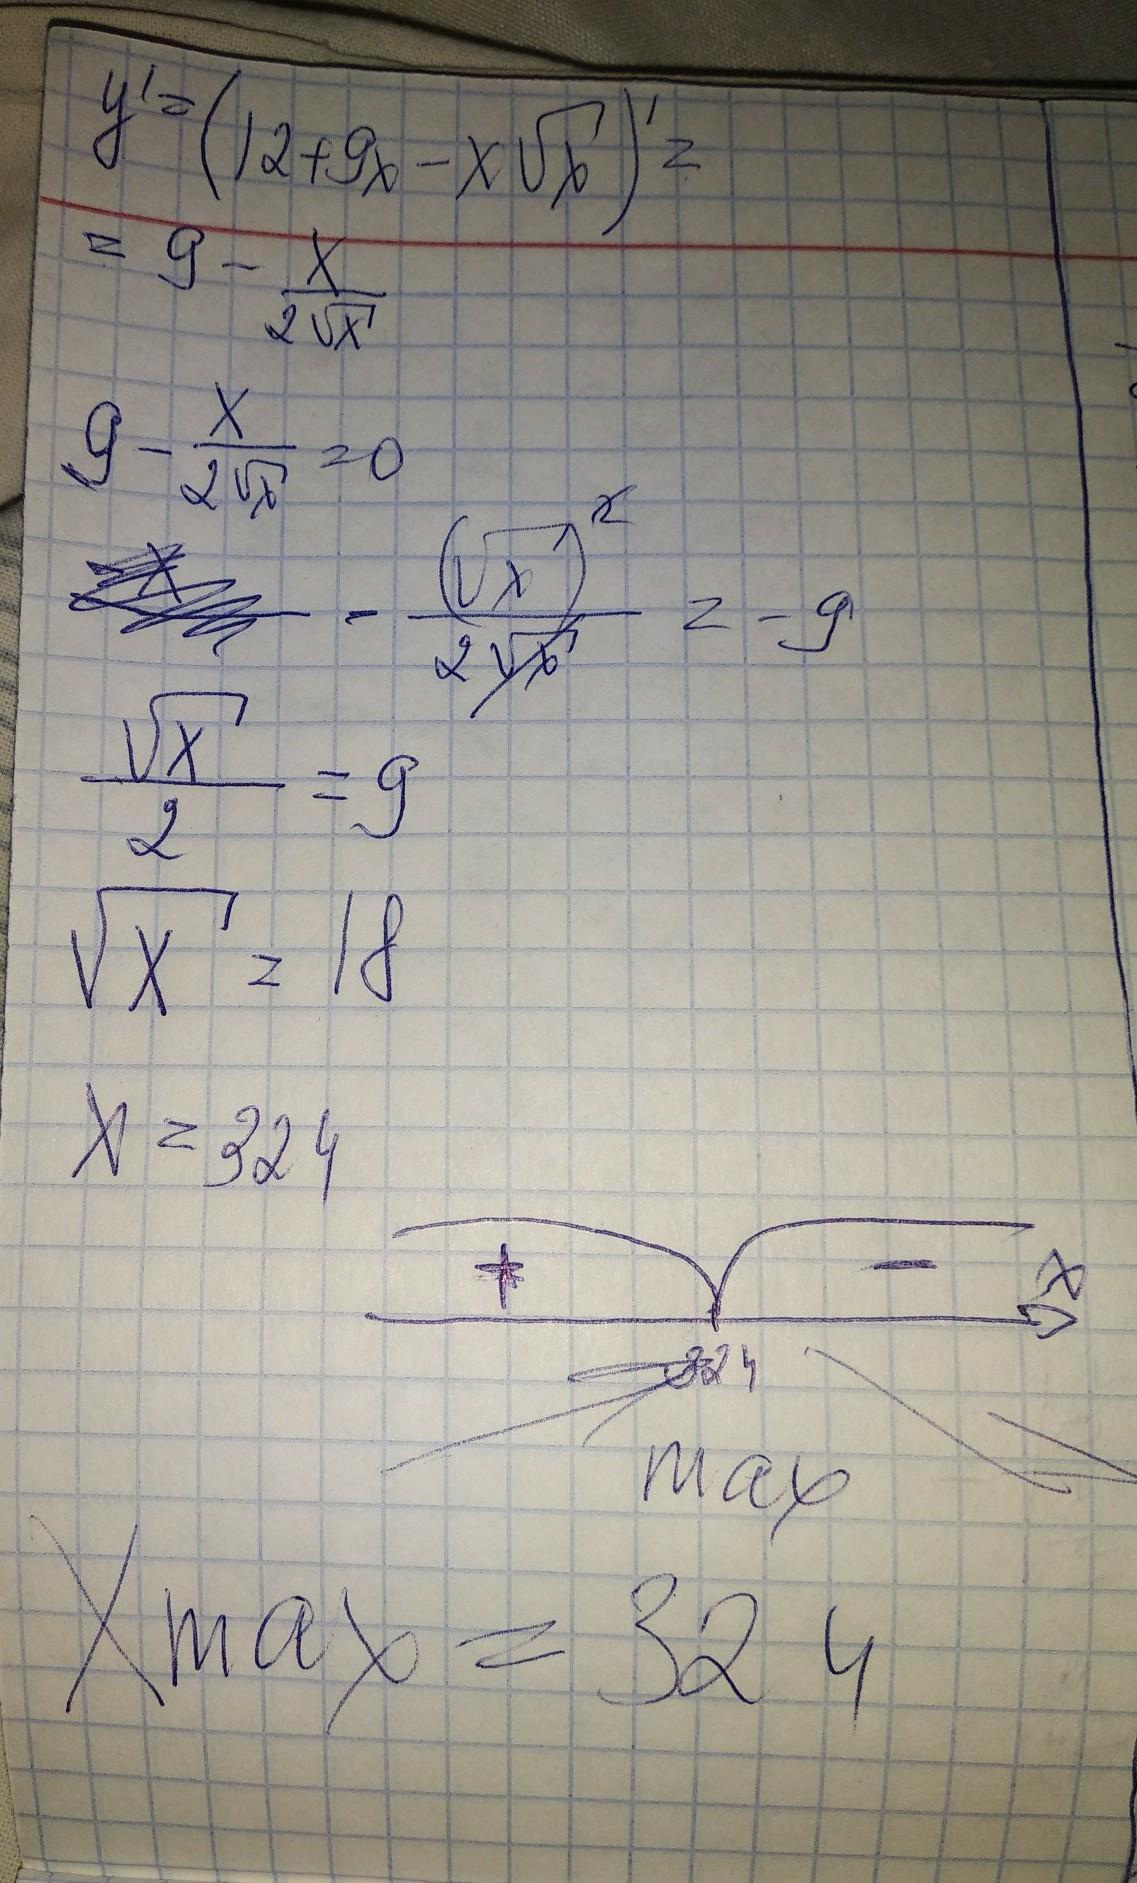 y' = (12 + 9x - x√x)' =
= 9 - x/(2√x)
9 - x/(2√x) = 0
- (√x)²/(2√x) = -9
√x/2 = 9
√x = 18
x = 324
+ - x
324
max
Xmax = 324